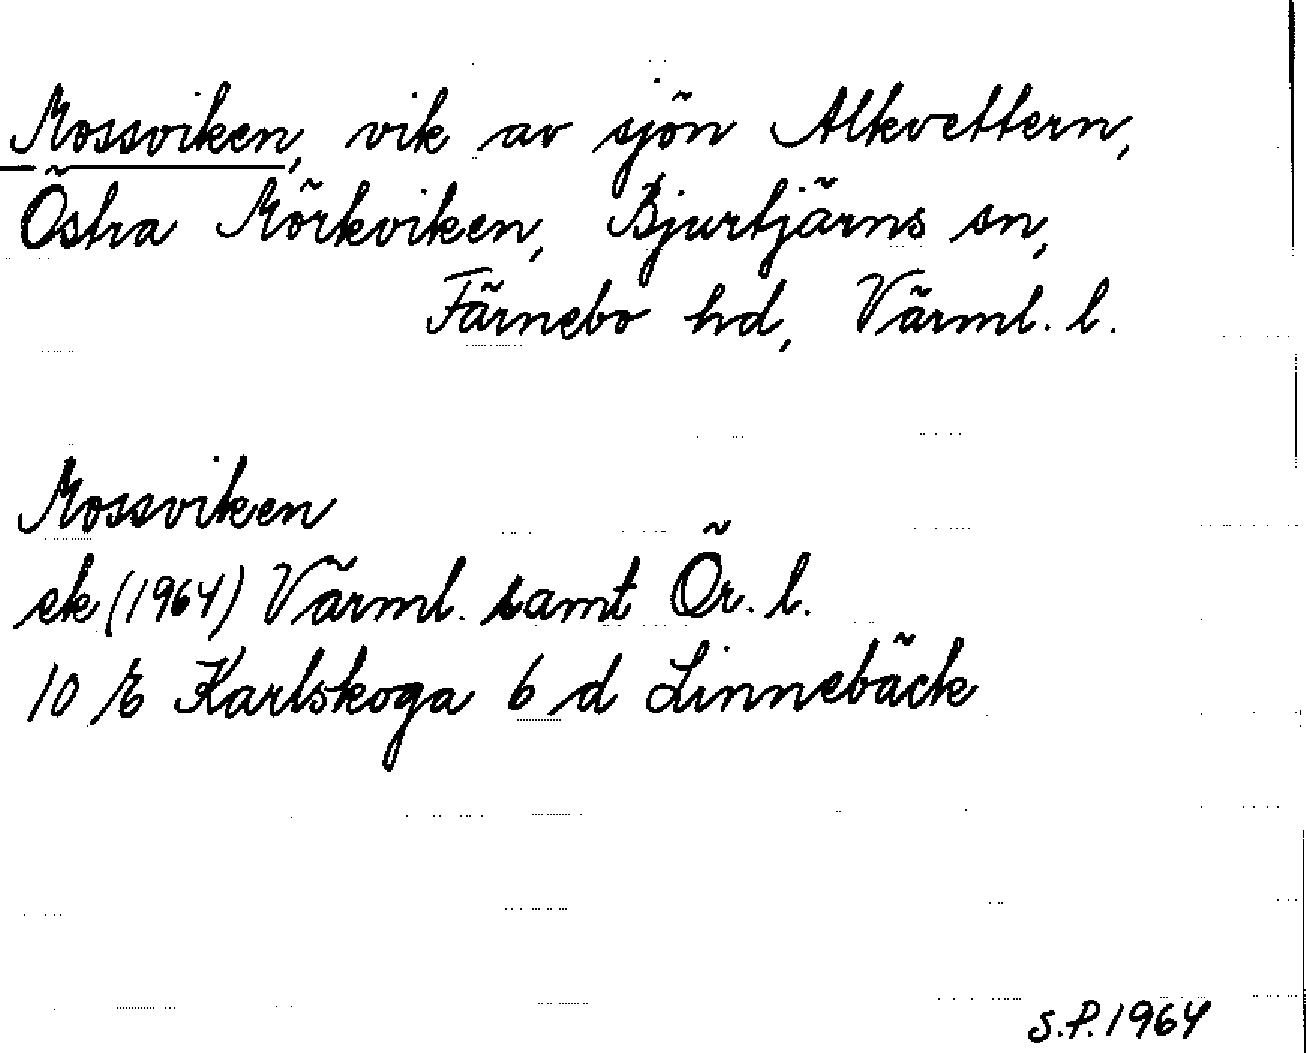 Mossviken, vik av sjön Alkvettern,
Östra Mörkviken, Bjurtjärns sn,
Färnebo hd, Värml. l.
Mossviken
ek (1964) Värml. samt Ör. l.
10 E Karlskoga 6 d Linnebäck
S.P. 1964